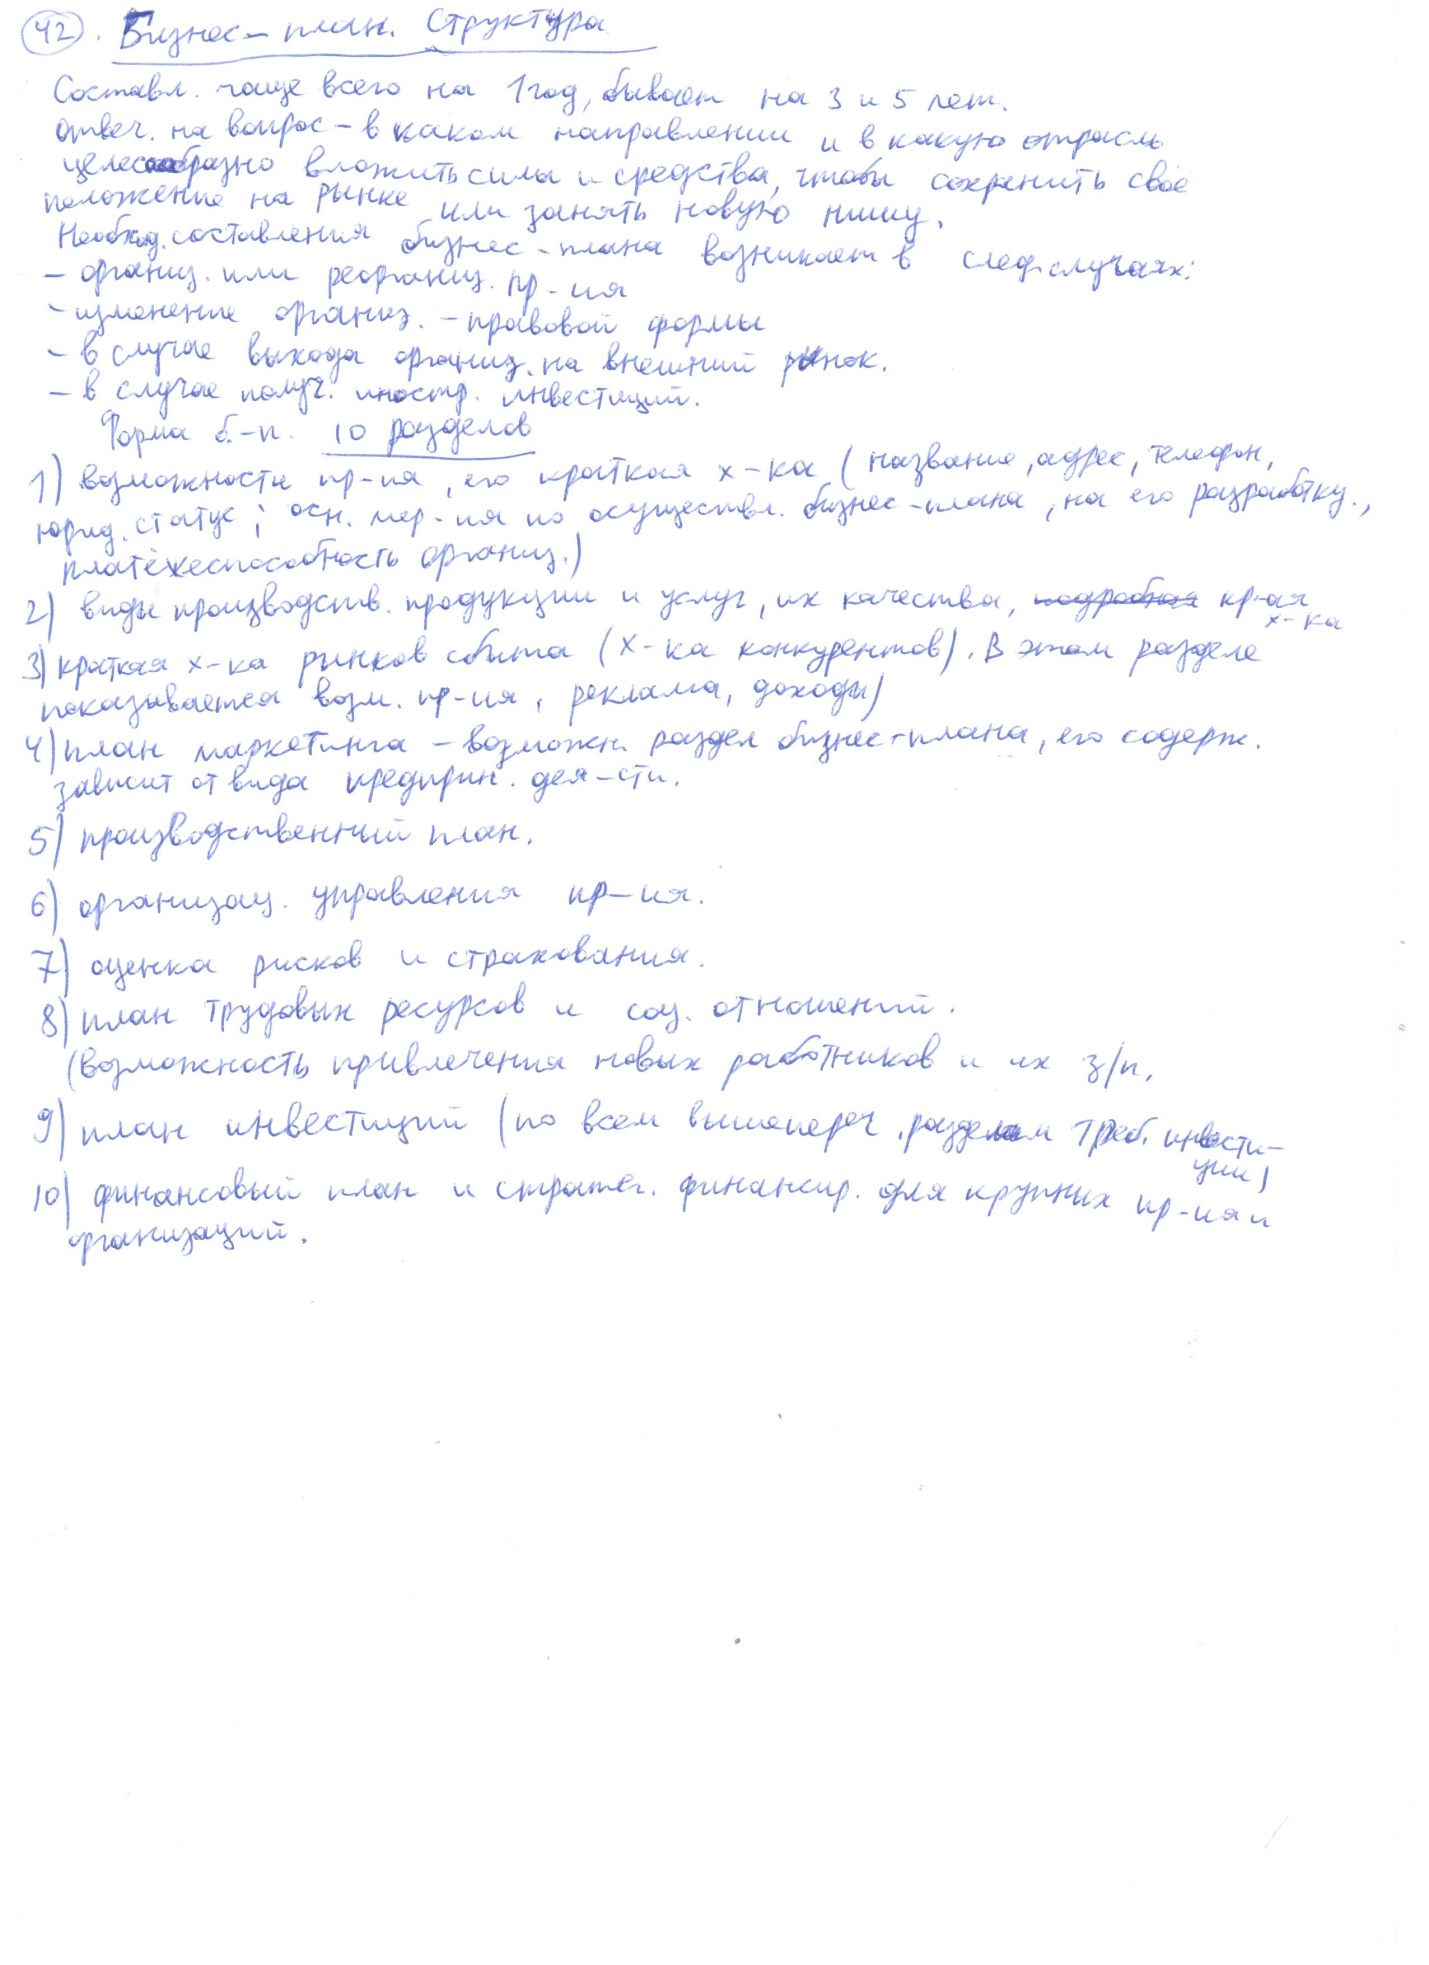 42. Бизнес-план. Структура
Составл. чаще всего на 1 год, бывает на 3 и 5 лет.
Отвеч. на вопрос - в каком направлении и в какую отрасль
целесообразно вложить силы и средства, чтобы сохранить своё
положение на рынке или занять новую нишу.
Необход. составления бизнес-плана возникает в след. случаях:
- организ. или реорганиз. пр-ия
- изменение организ. - правовой формы
- в случае выхода организ. на внешний рынок.
- в случае получ. иностр. инвестиций.
Форма б.-п. 10 разделов
1) возможности пр-ия, его краткая х-ка (название, адрес, телефон,
юрид. статус; осн. мер-ия по осуществл. бизнес-плана, на его разработку.,
платёжеспособность организ.)
2) виды производств. продукции и услуг, их качества, подробная кр-ая
х-ка
3) краткая х-ка рынков сбыта (х-ка конкурентов). В этом разделе
показывается возм. пр-ия, реклама, доходы)
4) план маркетинга - возможн. раздел бизнес-плана, его содерж.
зависит от вида предприн. дея-сти.
5) производственный план.
6) организац. управления пр-ия.
7) оценка рисков и страхования.
8) план трудовых ресурсов и соц. отношений.
(возможность привлечения новых работников и их з/п.
9) план инвестиций (по всем вышепереч. разделам треб. инвести-
ции)
10) финансовый план и стратег. финансир. для крупных пр-ия и
организаций.